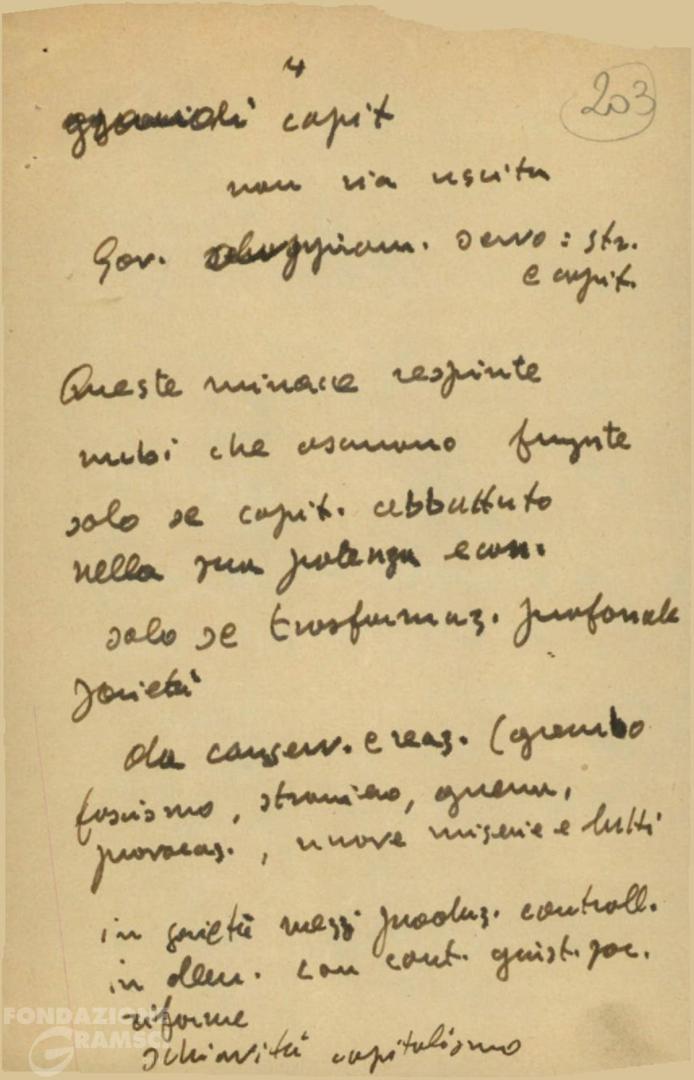 4
203
grandi capit
non via uscita
Gov. servo: str.
e capit.
Queste minacce respinte
nubi che oscurano fugate
solo se capit. abbattuto
nella sua potenza econ.
solo se trasformaz. profonda
società
da conserv. e reaz. (grembo
fascismo, straniero, guerra,
provocaz., nuove miserie e lutti
in società mezzi produz. controll.
in dem. con cont. giust. soc.
riforme
schiavitù capitalismo
FONDAZIONE
GRAMSCI